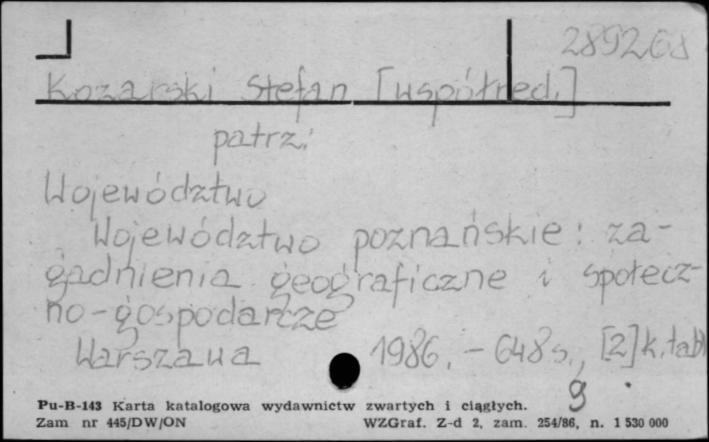 289268
Kozarski Stefan [współred.]
patrz:
Województwo
Województwo poznańskie: za-
gadnienia geograficzne i społecz-
no-gospodarcze
Warszawa 1986. - 648 s., [2] k. tabl
9
Pu-B-143 Karta katalogowa wydawnictw zwartych i ciągłych.
Zam nr 445/DW/ON WZGraf. Z-d 2, zam. 254/86, n. 1 530 000